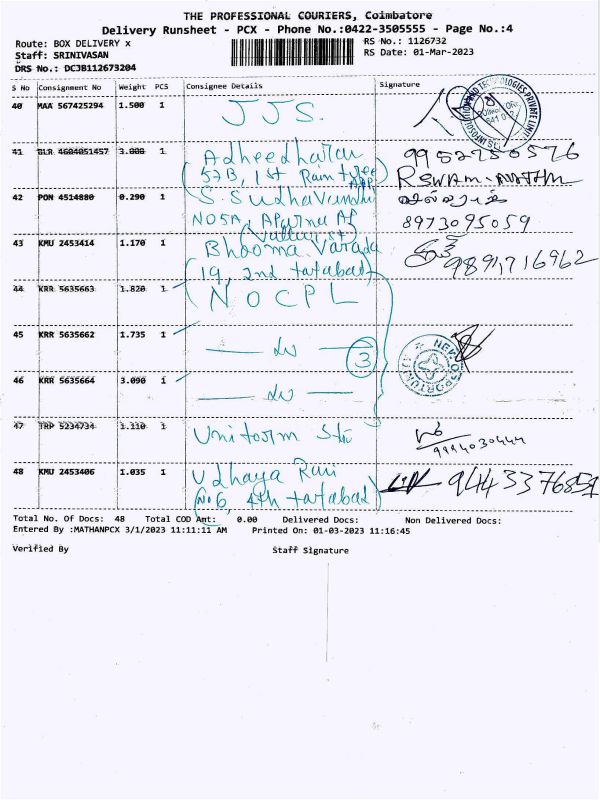 THE PROFESSIONAL COURIERS, Coimbatore
Delivery Runsheet - PCX - Phone No.:0422-3505555 - Page No.:4
Route: BOX DELIVERY x
RS No.: 1126732
Staff: SRINIVASAN
RS Date: 01-Mar-2023
DRS No.: DCJB112673204
S No Consignment No Weight PCS Consignee Details Signature
40 MAA 567425294 1.500 1 JJS.
41 BLR 4604051457 3.000 1 Adheedharan
(57B, 1st Raintree
9952750576
RSWAMINATHAN
42 PON 4514880 0.290 1 S. Sudhavandhi
NO5A, Aparna AP
(Valluvar st)
8973095059
43 KMU 2453414 1.170 1 Bhooma Varada
(19, 2nd tatabad)
9891716962
44 KRR 5635663 1.820 1 NOCPL
45 KRR 5635662 1.735 1
3
46 KRR 5635664 3.090 1
47 TRP 5234734 1.110 1 Uniform
9994030444
48 KMU 2453406 1.035 1 Udhaya Rani
(No 6, 4th tatabad)
9443376859
Total No. Of Docs: 48 Total COD Amt: 0.00 Delivered Docs: Non Delivered Docs:
Entered By :MATHANPCX 3/1/2023 11:11:11 AM Printed On: 01-03-2023 11:16:45
Verified By Staff Signature